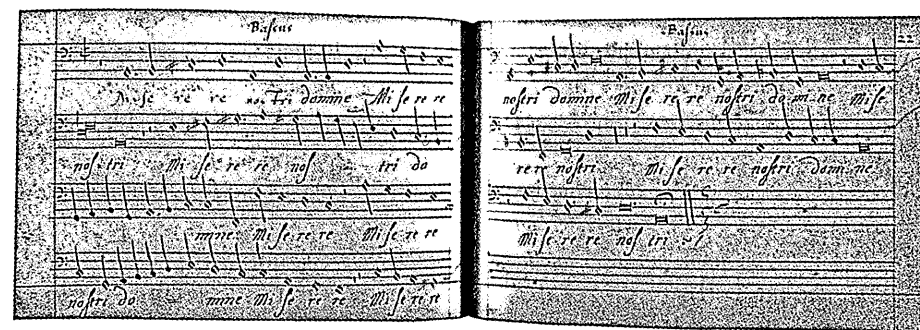 Bassus
Mise re re nos tri domine Mi se re re
nos tri Mi se re re nos - tri do
- mine Mi se re re Mi se re re
nostri do - mine Mi se re re Mi se re re
Bassus 22
nostri domine Mi se re re nostri do mi ne Mise
re re nostri Mi se re re nostri domi ne
Mi se re re nos tri